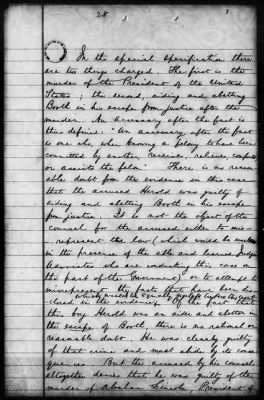 28
3
In the special specification there
are two things charged. The first is the
murder of the President of the United
States; the second, aiding and abetting
Booth in his escape from justice after the
murder. An accessory after the fact is
thus defined: "An accessory after the fact
is one who, when knowing a felony to have been
committed by another, receives, relieves, comforts
or assists the felon." There is no reason-
able doubt from the evidence in this case
that the accused Herold was guilty of
aiding and abetting Booth in his escape
from justice. It is not the object of the
counsel for the accused either to mis-
represent the law (which would be useless
in the province of the able and learned Judge
Advocates who are conducting this case on
the part of the Government) or to attempt to
misrepresent the facts that have been dis-
which would be equally
closed in the evidence. Of the fact that
this boy Herold was an aider and abettor in
the escape of Booth, there is no rational or
reasonable doubt. He was clearly guilty
of that crime and must abide by its conse-
quences. But the accused by his counsel
altogether denies that he was guilty of the
murder of Abraham Lincoln, President of